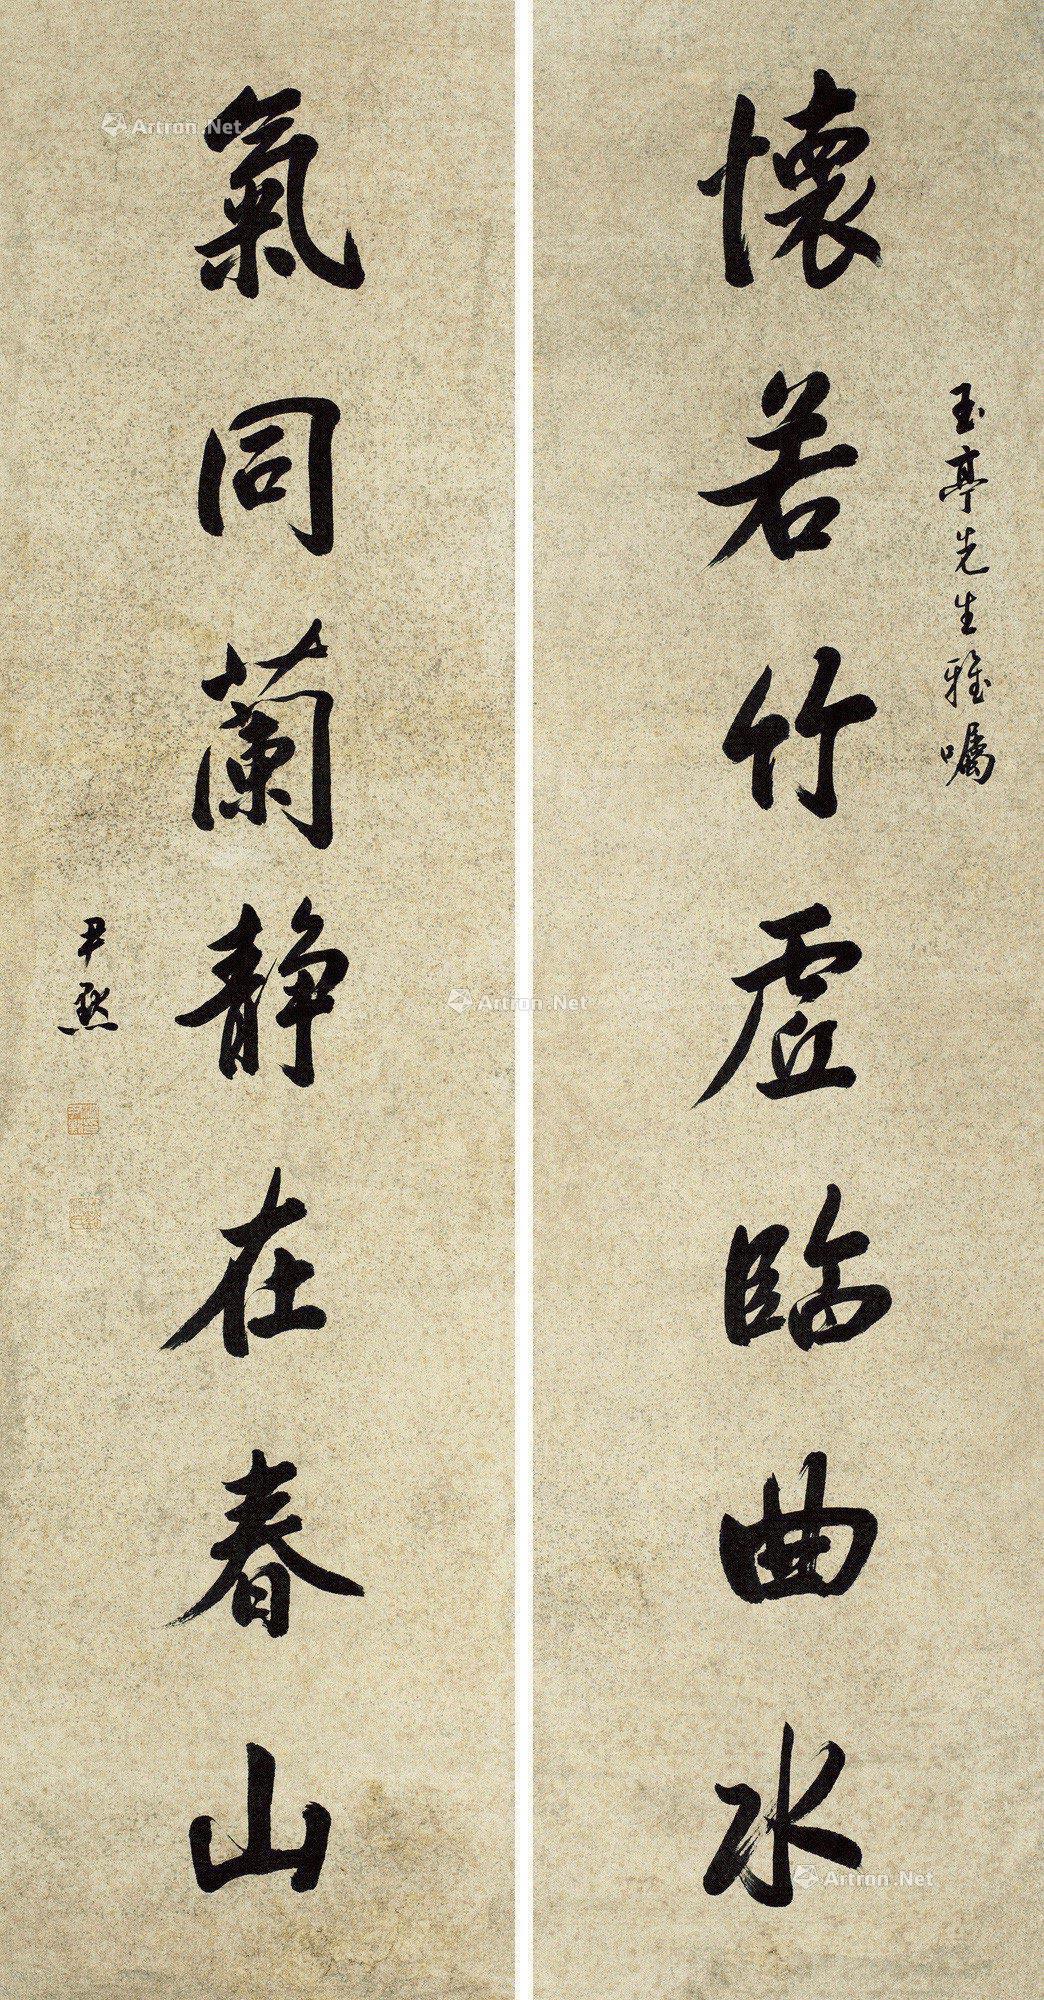 玉亭先生雅嘱
懷若竹虚臨曲水
氣同蘭静在春山
尹默
Artron.Net
Artron.Net
Artron.Net